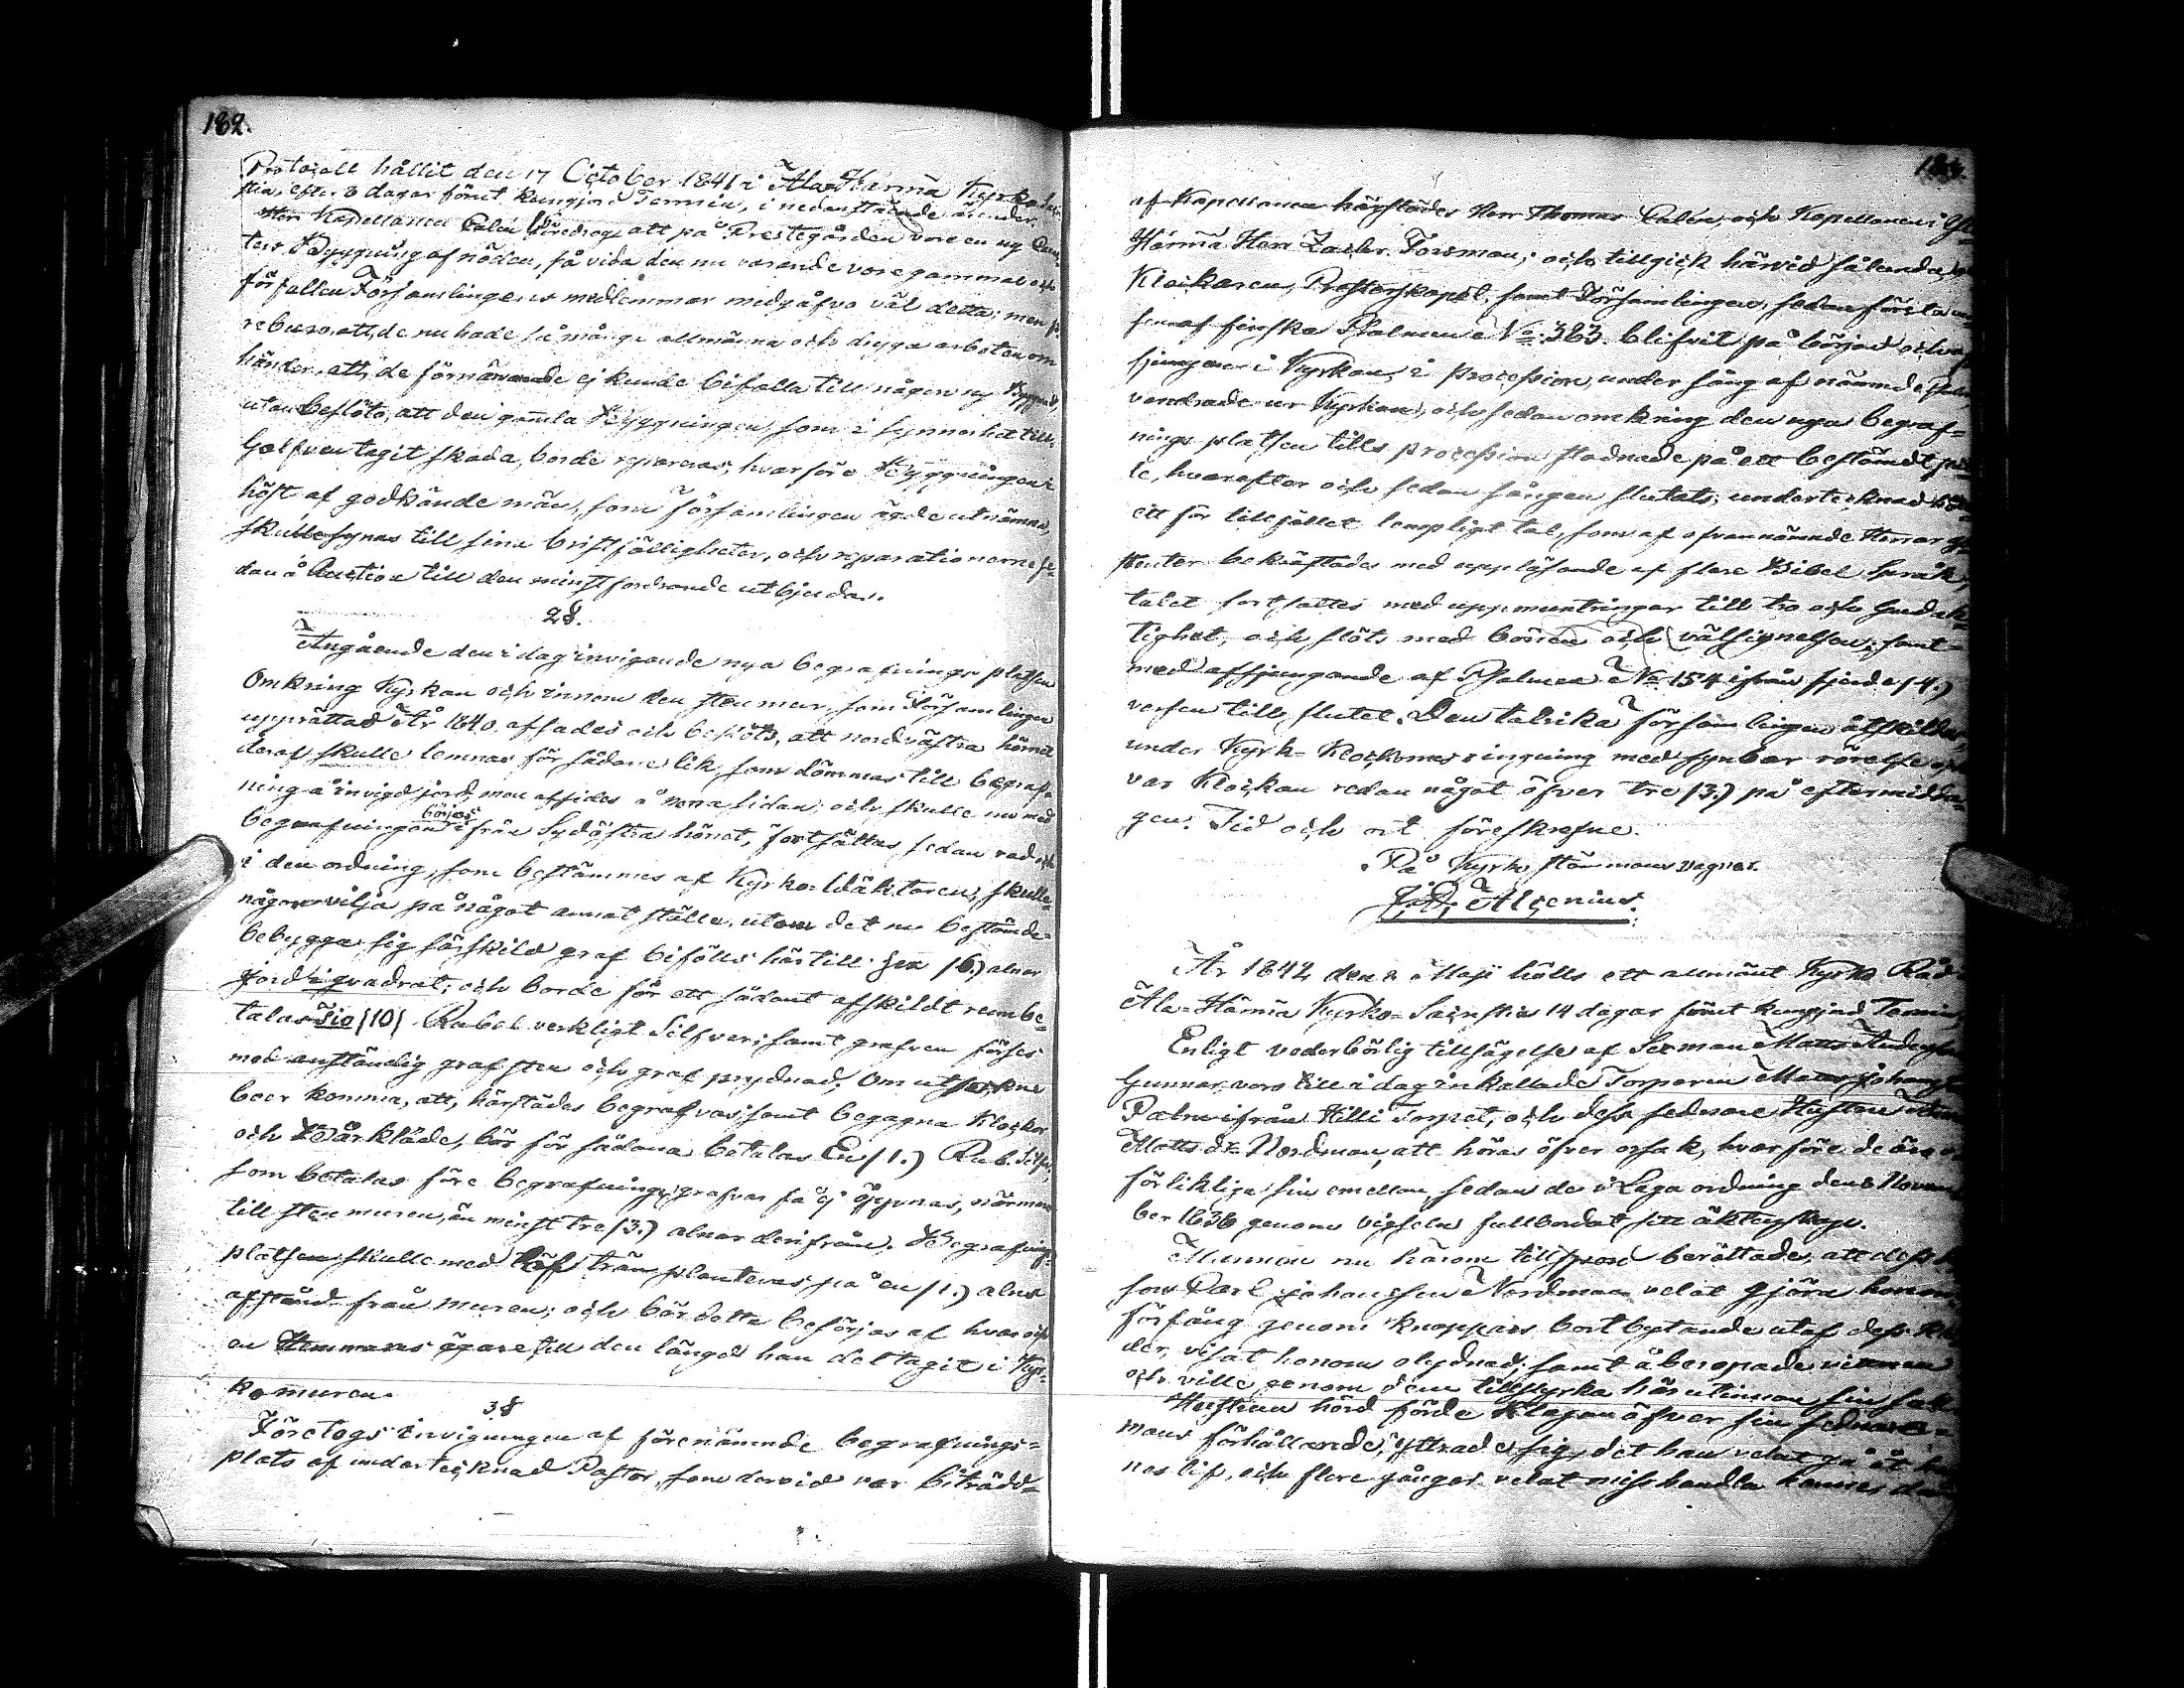 182.
Protocoll hållit den 17 October 1841 i Ala-Härmä Kyrko
stia, efter 8 dagar förut kungjord Termin, i nedanstående ärender.
1§
Herr Kapellanen Calén föredrog, att på Prestegården vore en ny
Byggning af nöden, så vida den nu varande vore gammal och
förfallen. Församlingens medlemmar medgåfvo väl detta; men
att, de nu hade så många allmänna och dryga arbeten om
händer, att, de förnärvarande ej kunde bifalla till någon ny Byggnad,
utan beslöto, att den gamla Byggningen, som i synnerhet till
Golfven tagit skada, borde repareras, hvarföre Byggningen i
höst af godkände män, som Församlingen ägde utnämna,
skulle synas till sina bristfälligheter, och reparationerne se-
dan å Auction till den minst fordrande utbjudas.
2§.
Angående den i dag invigande nya begrafnings platsen
omkring Kyrkan och innom den stenmur, som Församlingen
upprättad År 1840, aftades och beslöts, att nordvästra hörnet
deraf skulle lemnas för sådane lik, som dömmas till begraf-
ning å invigd jord, men afsides å norra sidan; och skulle nu med
begrafningen börjas ifrån Sydöstra hörnet, fortsättas sedan rad och
i den ordning, som bestämmes af Kyrko-Wäktaren, skulle
någon vilja på något annat ställe, utom det nu bestämde
bebygga sig särskild graf bifölls härtill Sex (6.) alnar
jord i qvadrat; och borde för ett sådant afskildt rum be-
talas Tio (10) Rubel verkligt Silfver; samt grafven förses
med anständig grafsten och graf prydnad; Om utsocknes
boer komma, att, härstädes begrafvas, samt begagna Klockor
och Bårkläde, bör för sådana betalas En (1.) Rub. Silfv,
som betalas före begrafningen, grafvar få ej öppnas, närmare
till stenmuren, än minst tre (3.) alnar derifrån. Begrafnings
platsen skulle med löf trän planteras på en (1.) alns
afstånd från muren; och bör detta besörjas af hvar och
en Hemmans ägare, till den längd han deltagit i Kyr-
komuren.
3§
Företogs invigningen af förenämnde begrafnings-
plats af undertecknad Pastor, som dervid var biträdd
af Kapellanen härstädes Herr Thomas Calén, och Kapellanen i
Härmä Herr Zachr. Forsman; och tillgick härvid sålunda,
Klockaren, Presterskapet, samt Församlingen, sedan första
af finska Psalmen No 383. blifvit på börjad och
sjungen i Kyrkan, i procession, under sång af nämnde Psalm
vandrade ur Kyrkan, och sedan omkring den nya begraf-
nings platsen tills procession stadnade på ett bestämdt
le, hvarefter och sedan sången slutats, undertecknad höll
ett för tillfället lempligt tal, som af ofvannämnde Herrar
bekräftades med uppläsande af flere Bibel Språk,
talet fortsattes med uppmuntringar till tro och Gudak-
tighet, och slöts med bönen och välsignelsen; samt
med afsjungande af Psalmen No 154 ifrån fjerde (4.)
versen till slutet. Den talrika församlingen åtskildes
under Kyrk-Klockornes ringning med synbar rörelse
var Klockan redan något öfver tre (3.) på eftermidda-
gen. Tid och ort föreskrefne.
På Kyrko stämmans vagnar.
Alcenius.
År 1842 den 2 Maji hölls ett allmänt Kyrko Råd
Ala-Härmä Kyrko-Sacristia 14 dagar förut kungjord Termin
Enligt vederbörlig tillsägelse af Sexman Matts
Gunnar, voro till i dag inkallade Torparen Matts
Palm ifrån Killi Torpet, och dess sednare Hustru
Matts dr. Nordman, att höras öfver orsak, hvarföre de äro
förlikliga sins emellan, sedan de i Laga ordning den Novem-
ber 1836 genom vigseln fullbordat sitt äktenskap.
Mannen nu härom tillspord berättade, att dess
son Carl Johansson Nordman velat gjöra honom
förfång genom knappars bortbytande utaf dess
der, visat honom olydnad; samt åberopade vittnen
och ville genom dem tillstyrka härutinnan sin sak
Hustrun hörd förde klagan öfver sin sednare
mans förhållande, yttrade sig, det han velat gå åt
nes lif, och flere gånger velat misshandla hennes